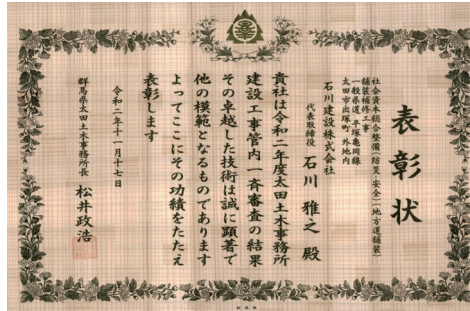 表彰状
社会資本総合整備(防災・安全)(地方道舗装)
舗装補修工事
一般県道 平塚亀岡線
太田市出塚町 外地内
石川建設株式会社
代表取締役 石川雅之 殿
貴社は令和二年度太田土木事務所
建設工事管内一斉審査の結果
その卓越した技術は誠に顕著で
他の模範となるものであります
よってここにその功績をたたえ
表彰します
令和二年十一月十七日
群馬県太田土木事務所長 松井政浩